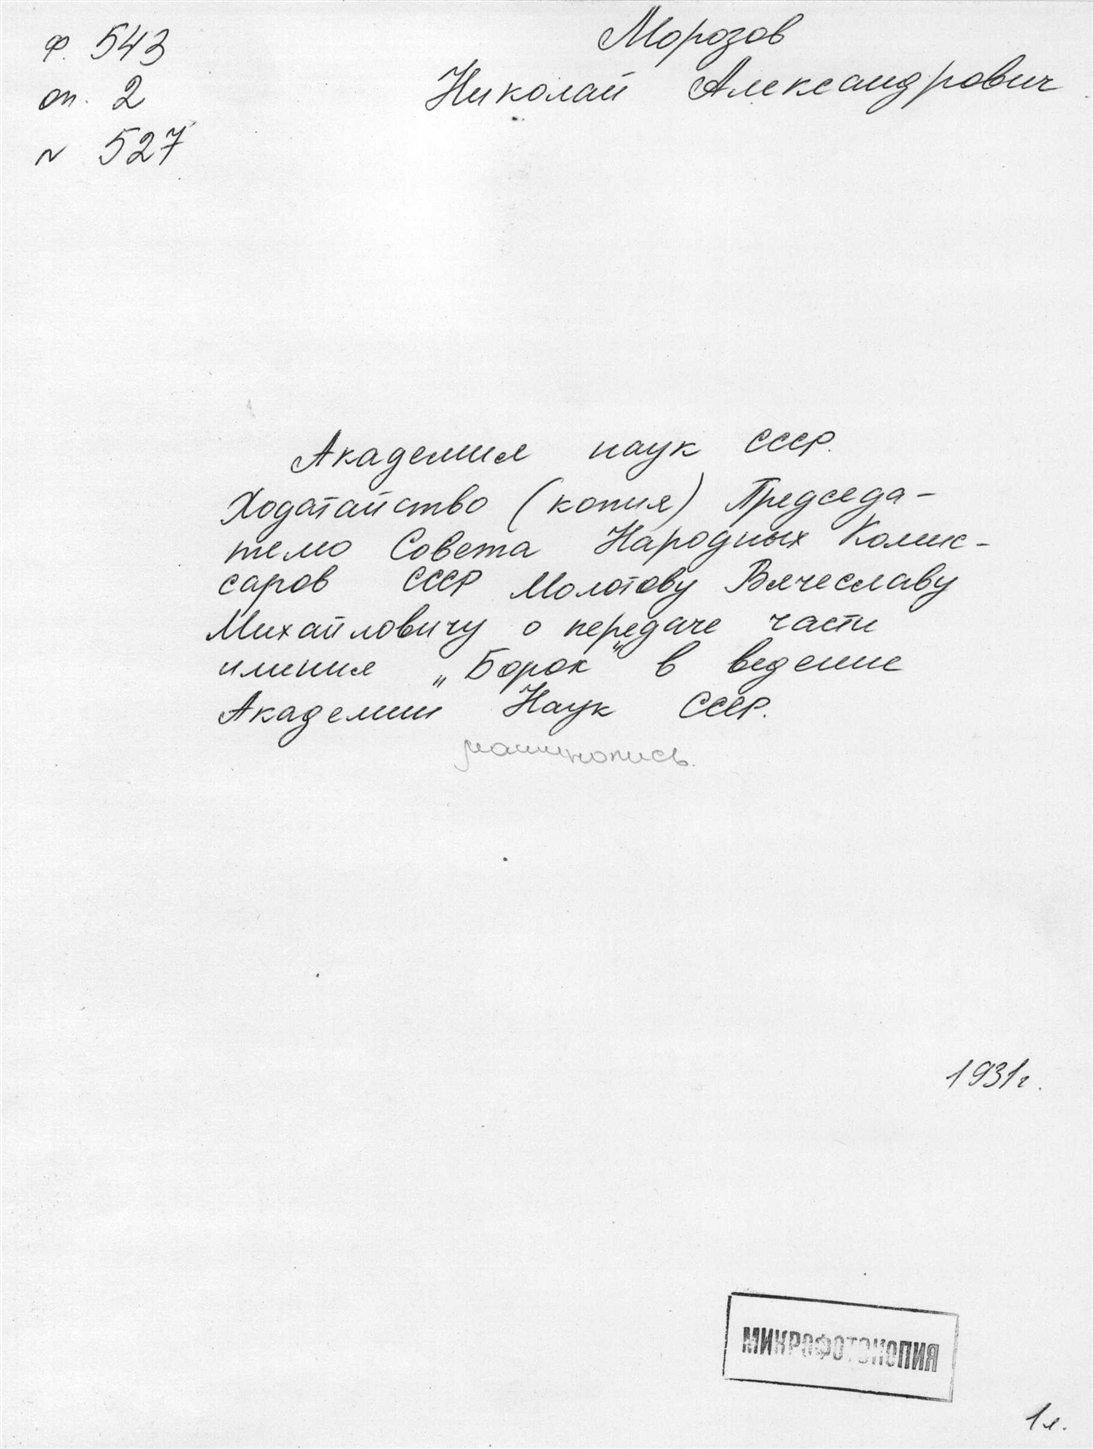 ф. 543
оп. 2
№ 527
Морозов
Николай Александрович
Академия наук СССР.
Ходатайство (копия) Председа-
телю Совета Народных Комис-
саров СССР Молотову Вячеславу
Михайловичу о передаче части
имения „Борок" в ведение
Академии Наук СССР.
машинопись.
1931г.
МИКРОФОТОКОПИЯ
1л.